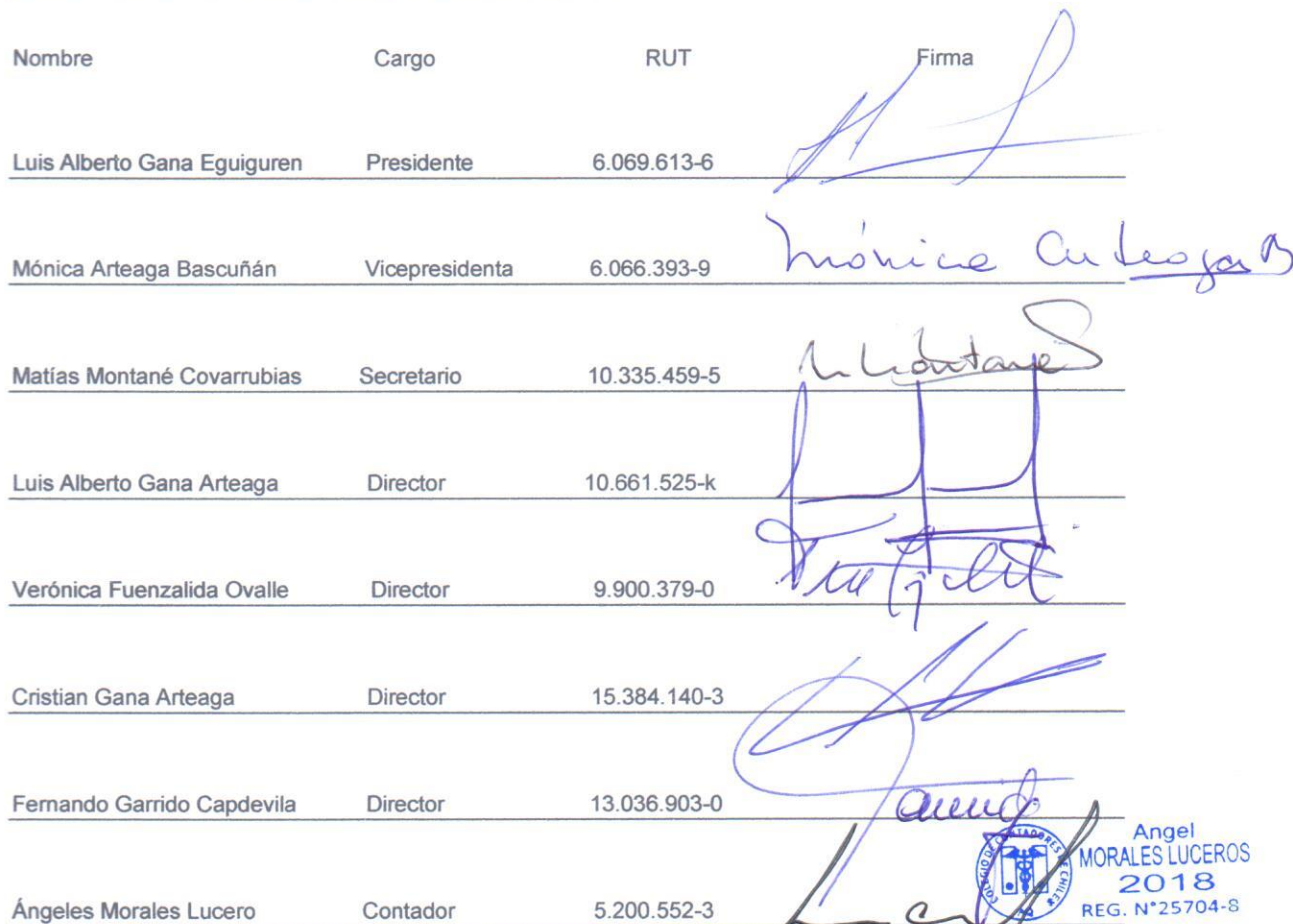 Nombre Cargo RUT Firma
Luis Alberto Gana Eguiguren Presidente 6.069.613-6
Mónica Arteaga Bascuñán Vicepresidenta 6.066.393-9 Mónica Arteaga B
Matías Montané Covarrubias Secretario 10.335.459-5 Montané
Luis Alberto Gana Arteaga Director 10.661.525-k
Verónica Fuenzalida Ovalle Director 9.900.379-0
Cristian Gana Arteaga Director 15.384.140-3
Fernando Garrido Capdevila Director 13.036.903-0
Ángeles Morales Lucero Contador 5.200.552-3
COLEGIO DE CONTADORES DE CHILE
Angel
MORALES LUCEROS
2018
REG. N°25704-8